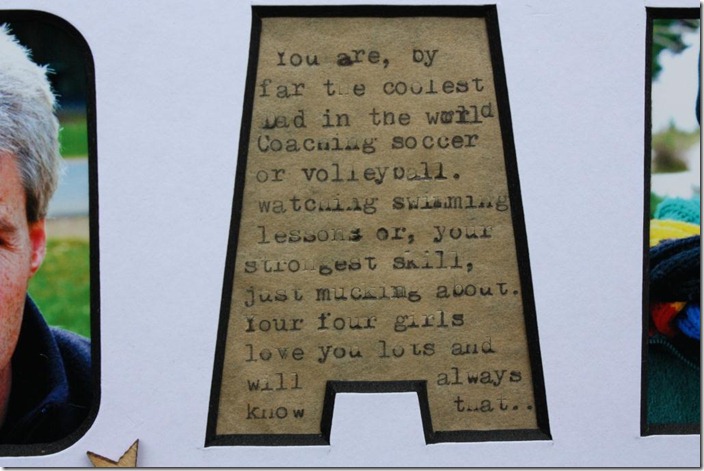 You are, by
far the coolest
Dad in the world
Coaching soccer
or volleyball.
watching swimming
lessons or, your
strongest skill,
just mucking about.
Your four girls
love you lots and
will always
know that..